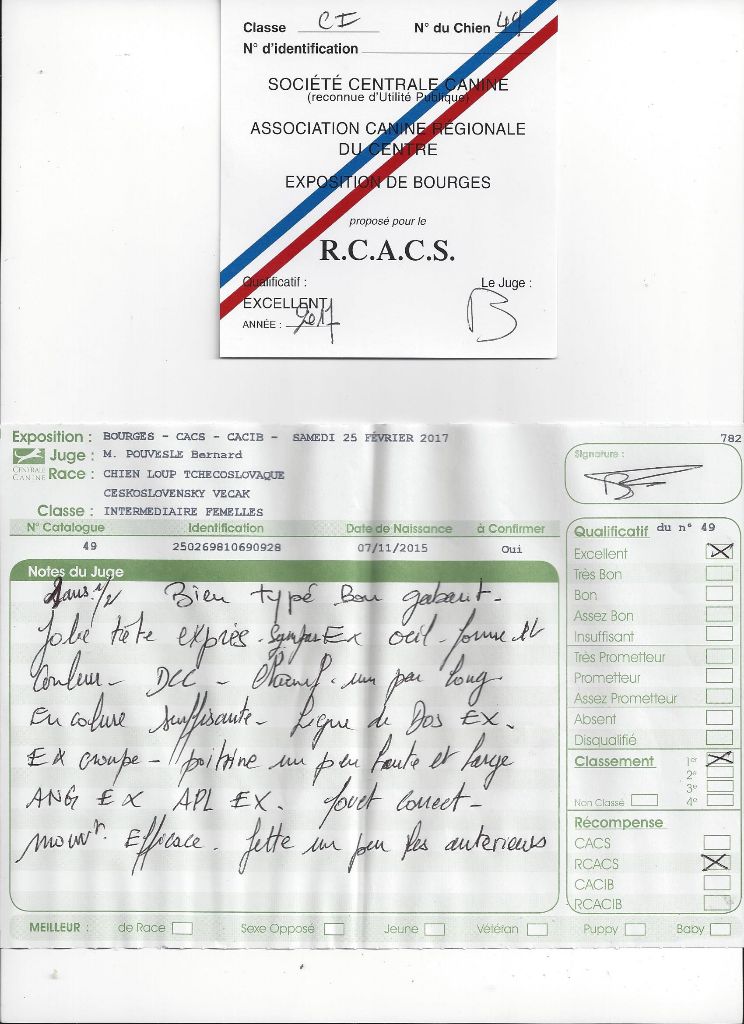 Classe CI N° du Chien 49
N° d'identification
SOCIÉTÉ CENTRALE CANINE
(reconnue d'Utilité Publique)
ASSOCIATION CANINE REGIONALE
DU CENTRE
EXPOSITION DE BOURGES
proposé pour le
R.C.A.C.S.
Qualificatif : Le Juge :
EXCELLENT
ANNÉE : 2017
Exposition : BOURGES - CACS - CACIB - SAMEDI 25 FÉVRIER 2017 782
Juge : M. POUVESLE Bernard
CENTRALE CANINE
Race : CHIEN LOUP TCHECOSLOVAQUE
CESKOSLOVENSKY VECAK
Classe : INTERMEDIAIRE FEMELLES
Signature :
N° Catalogue Identification Date de Naissance à Confirmer
49 250269810690928 07/11/2015 Oui
Notes du Juge
2ans 1/2 Bien typé Bon gabarit -
Jolie tête express. Ex oeil - forme et
Couleur - DCC - un peu long
Encolure suffisante - Ligne de Dos EX.
EX croupe - poitrine un peu haute et large
ANG EX APL EX. fouet correct -
mouvt. Efficace. Jette un peu les antérieurs
Qualificatif du n° 49
Excellent
Très Bon
Bon
Assez Bon
Insuffisant
Très Prometteur
Prometteur
Assez Prometteur
Absent
Disqualifié
Classement 1er
2e
3e
Non Classé 4e
Récompense
CACS
RCACS
CACIB
RCACIB
MEILLEUR : de Race Sexe Opposé Jeune Vétéran Puppy Baby